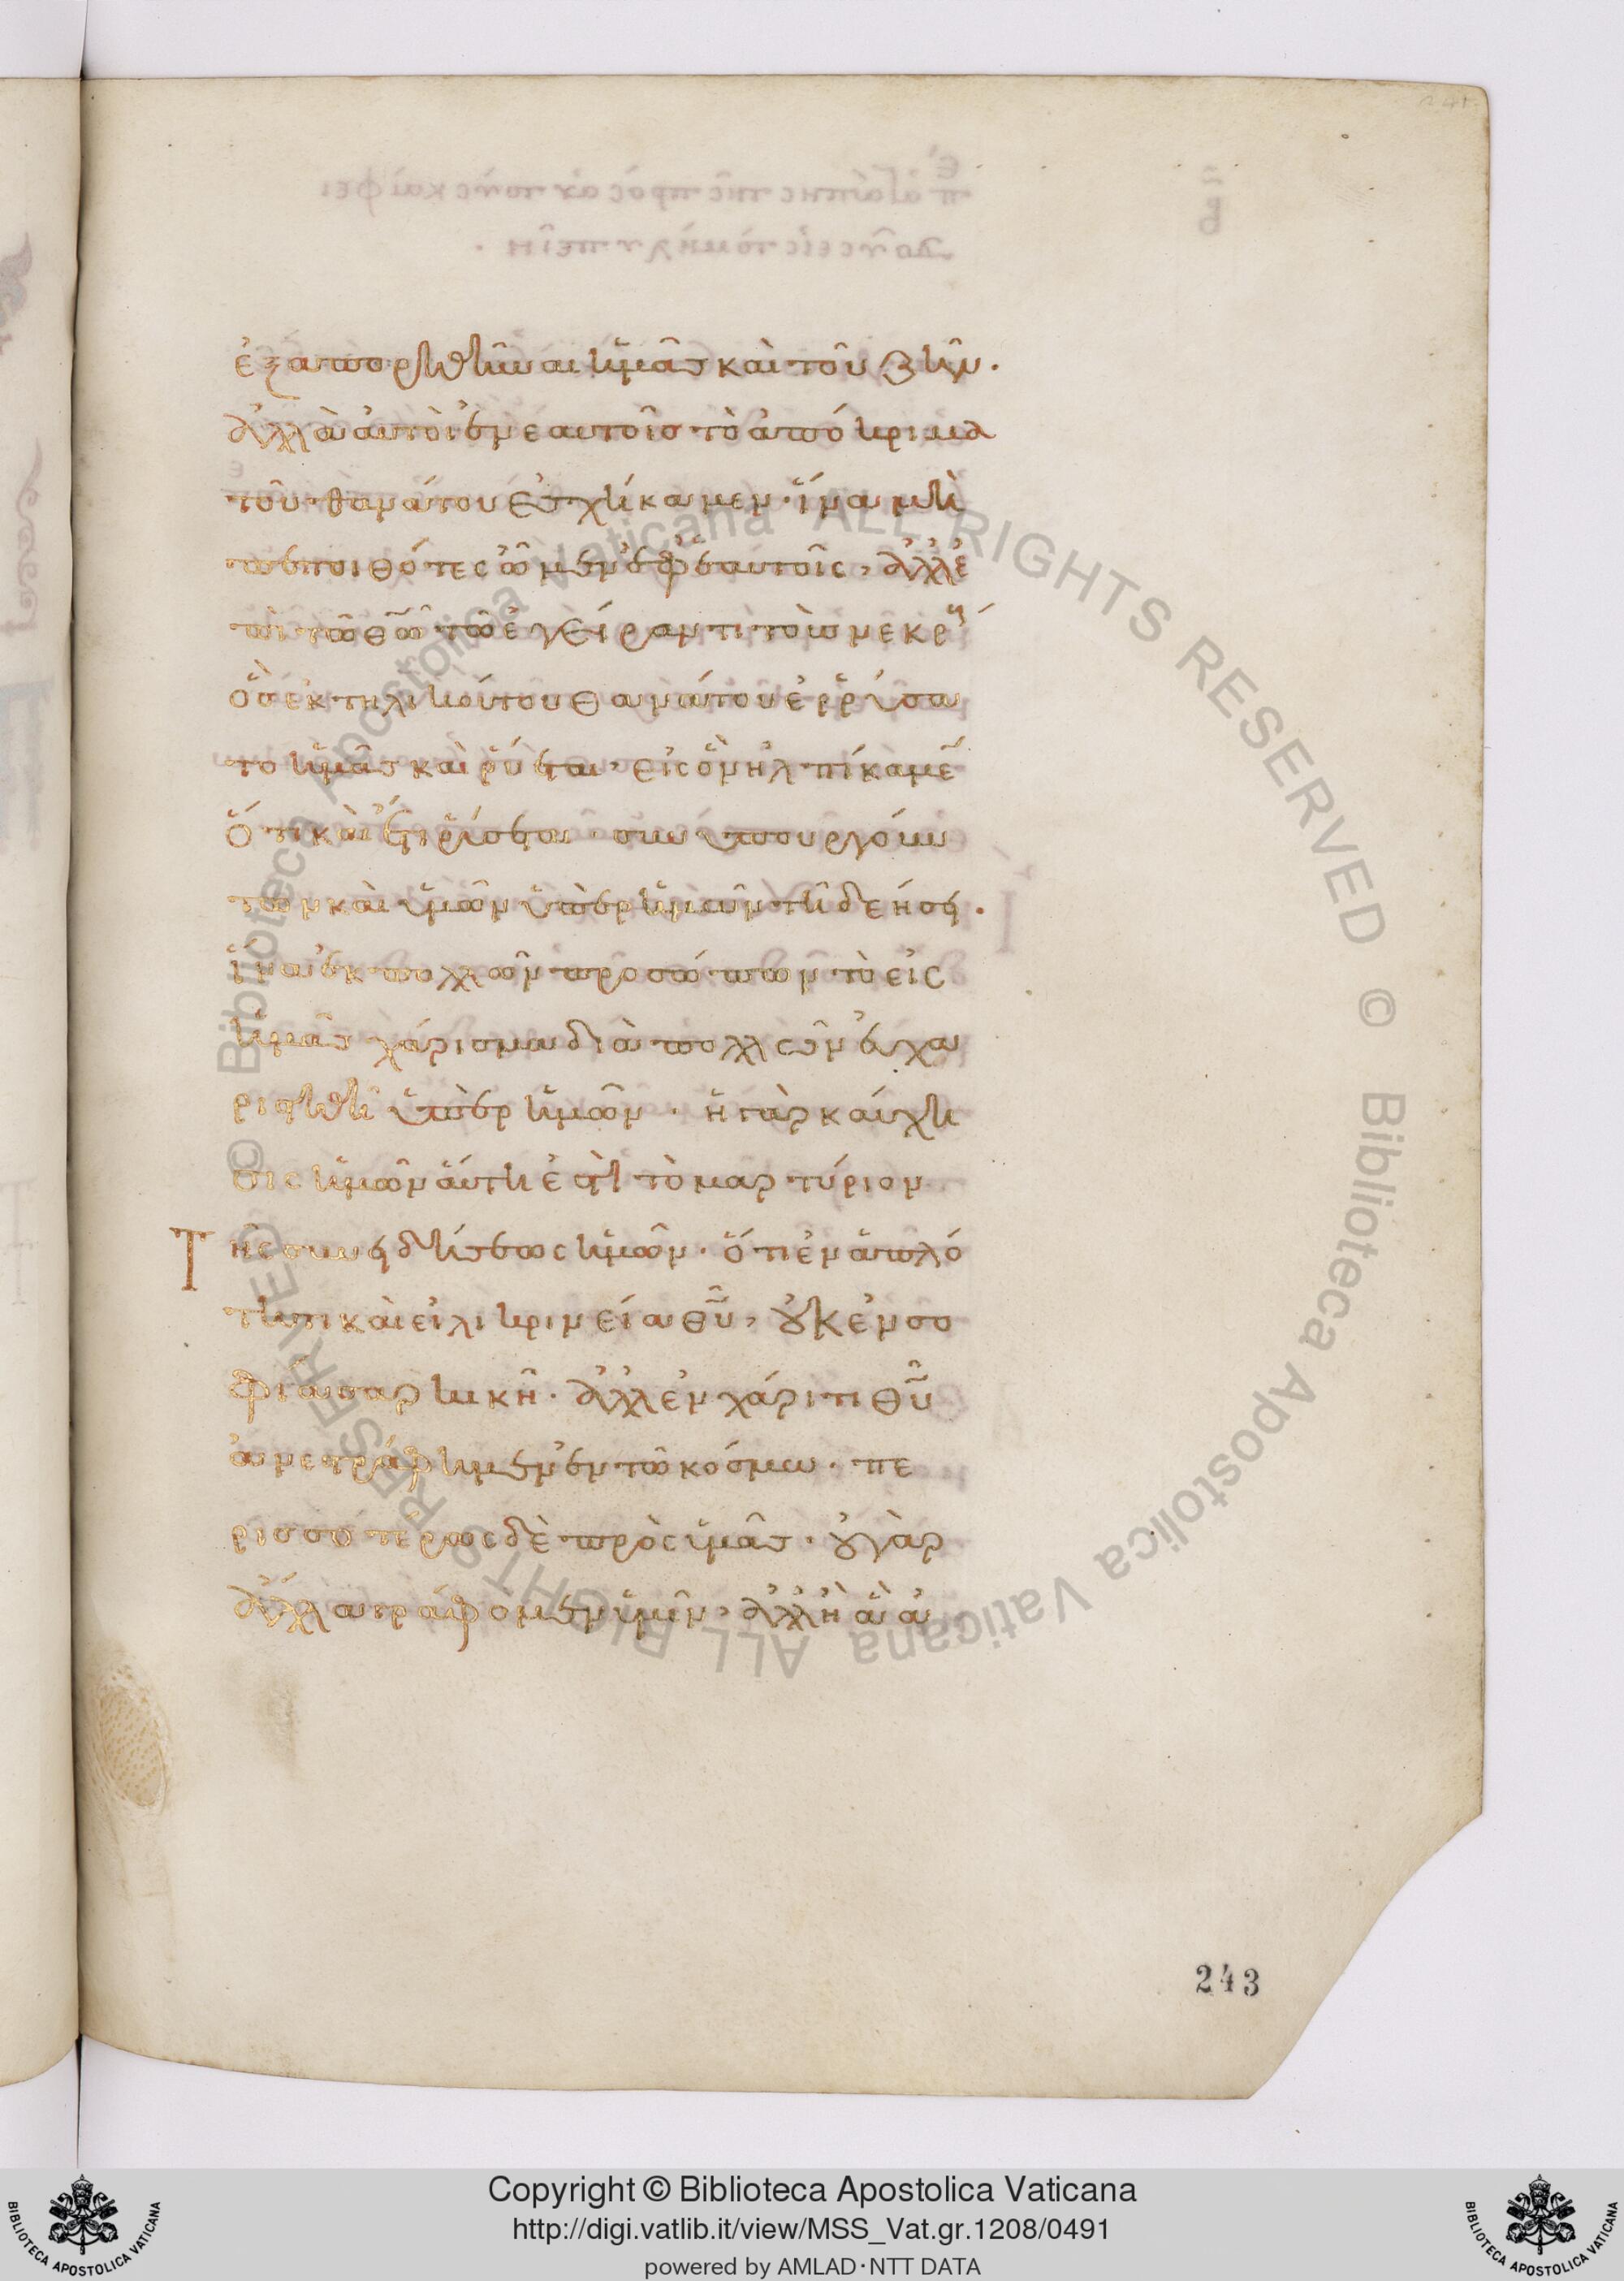 ἐξαπορηθῆναι ἡμᾶς καὶ τοῦ ζῆν.
ἀλλὰ αὐτοὶ ἐν ἑαυτοῖς τὸ ἀπόκριμα
τοῦ θανάτου ἐσχήκαμεν· ἵνα μὴ
πεποιθότες ὦμεν ἐφ' ἑαυτοῖς, ἀλλ' ἐ
πὶ τῶ θῶ τῶ ἐγείραντι τοὺς νεκρ
ὃς ἐκ τηλικούτου θανάτου ἐρρύσα
το ἡμᾶς καὶ ῥύεται, εἰς ὃν ἠλπίκαμε
ὅτι καὶ ἔτι ῥύσεται· συνυπουργούν
των καὶ ὑμῶν ὑπὲρ ἡμῶν τῆ δεήσει.
ἵνα ἐκ πολλῶν προσώπων τὸ εἰς
ἡμᾶς χάρισμα διὰ πολλῶν εὐχα
ριστηθῆ ὑπὲρ ἡμῶν· ἡ γὰρ καύχη
σις ἡμῶν αὕτη ἐστὶ τὸ μαρτύριον
Τῆς συνειδήσεως ἡμῶν· ὅτι ἐν ἁπλό
τητι καὶ εἰλικρινεία θῦ, οὐκ ἐν σο
φία σαρκικῆ· ἀλλ' ἐν χάριτι θῦ
ἀνεστράφημεν ἐν τῶ κόσμω· πε
ρισσοτέρως δὲ πρὸς ὑμᾶς· οὐ γὰρ
ἄλλα γράφομεν ὑμῖν, ἀλλ' ἢ ἃ ἀ
243
© Biblioteca Apostolica Vaticana ALL RIGHTS RESERVED © Biblioteca Apostolica Vaticana ALL RIGHTS RESERVED
Copyright © Biblioteca Apostolica Vaticana
http://digi.vatlib.it/view/MSS_Vat.gr.1208/0491
powered by AMLAD·NTT DATA
BIBLIOTECA APOSTOLICA VATICANA
BIBLIOTECA APOSTOLICA VATICANA